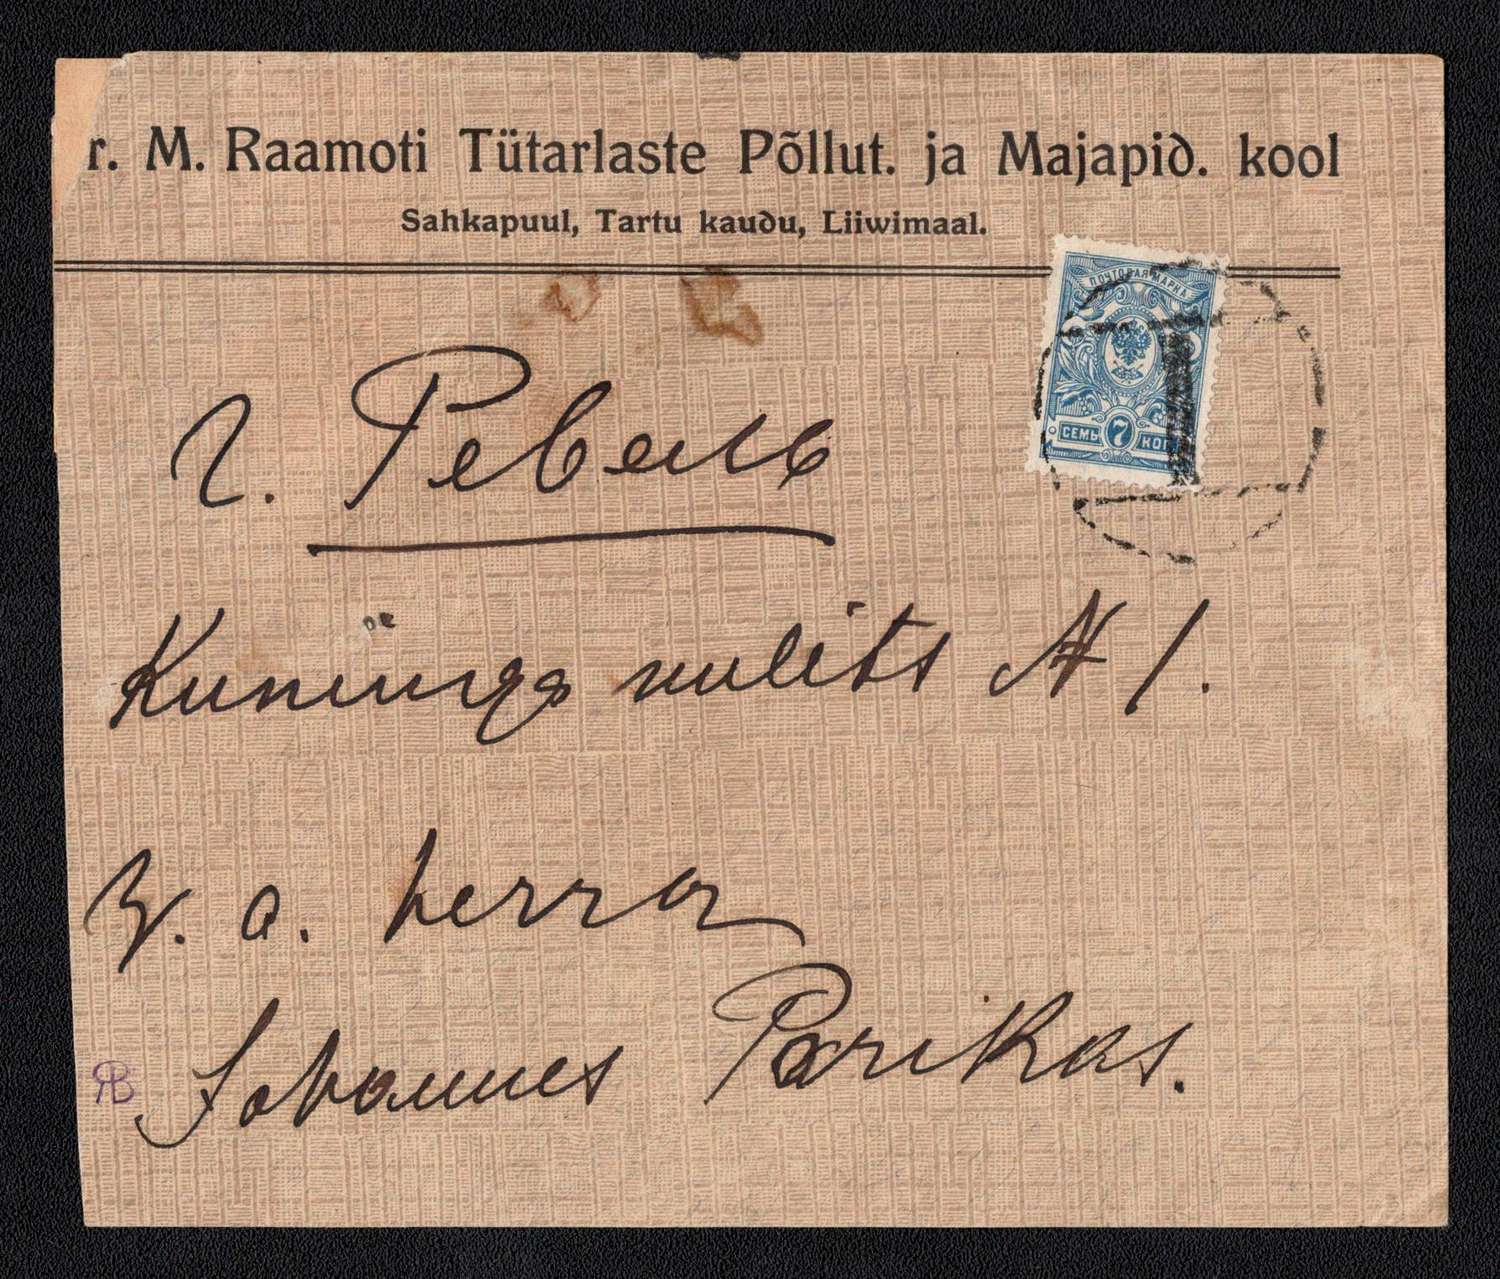 r. M. Raamoti Tütarlaste Põllut. ja Majapid. kool
Sahkapuul, Tartu kaudu, Liiwimaal.
ПОЧТОВАЯ МАРКА
СЕМЬ 7 КОП
г. Ревель
Kuninga uulits № 1.
W. a. herra
Johannes Parikas.